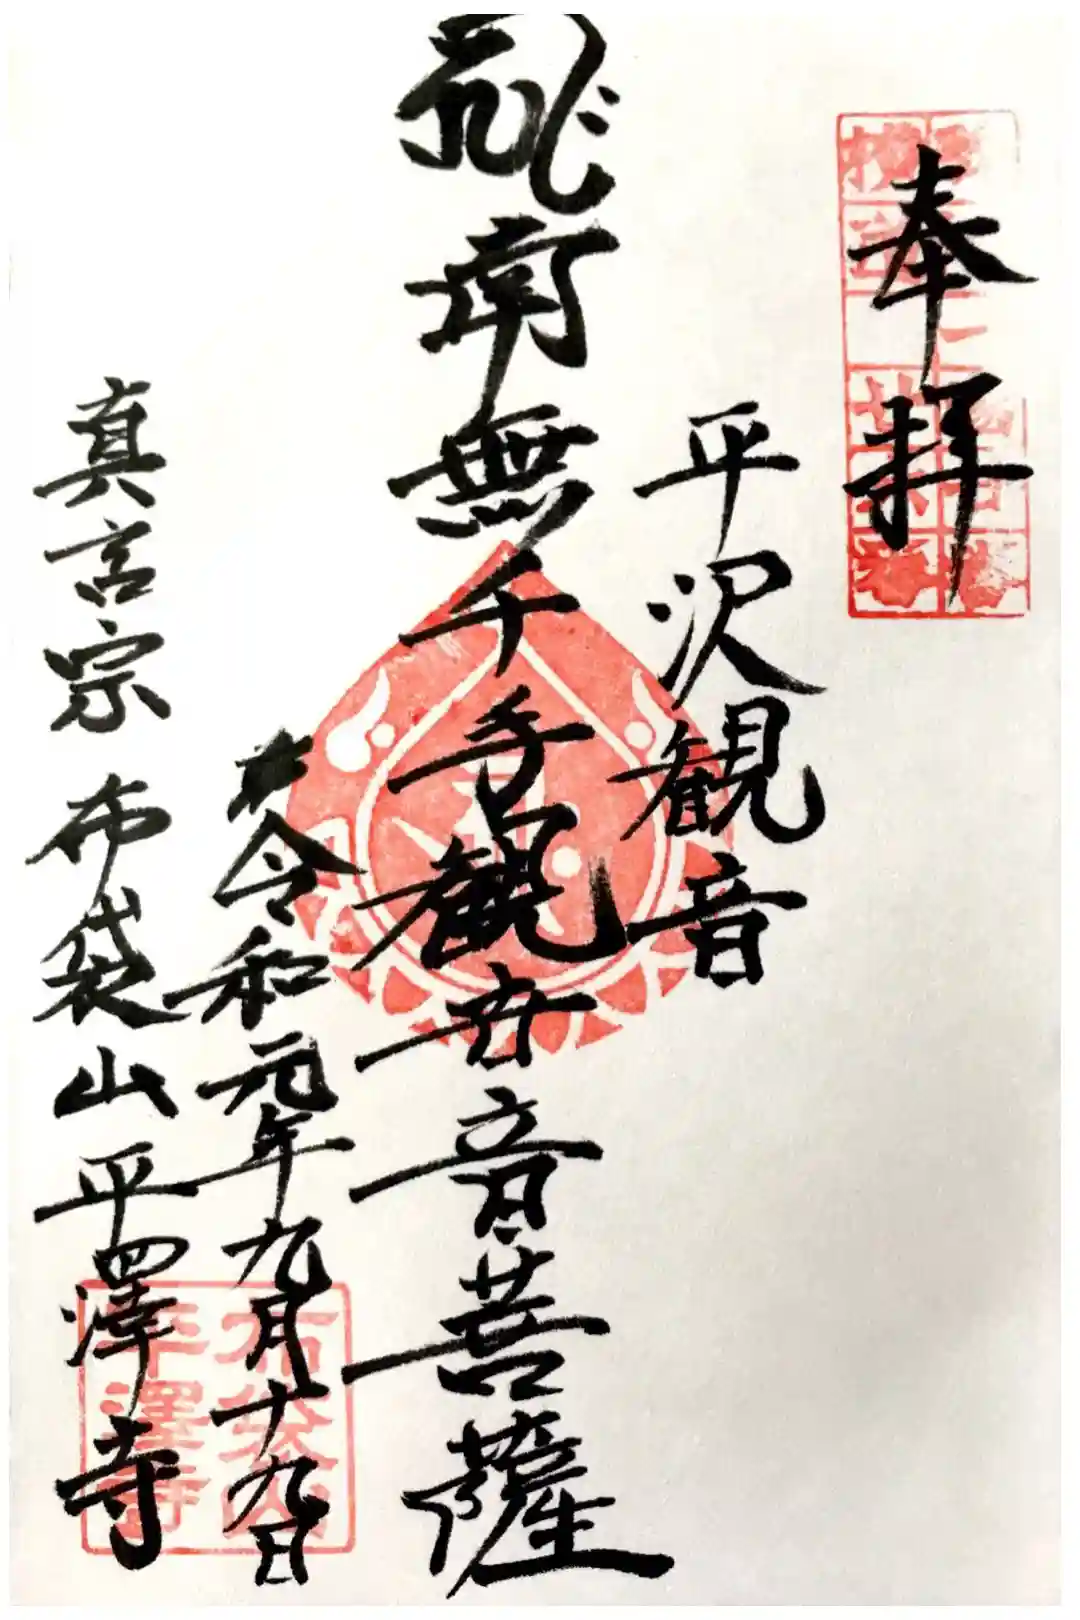 奉拝
平沢観音
南無千手観音音菩薩
令和元年九月十九日
真言宗 布袋山 平澤寺
布袋山
平澤寺